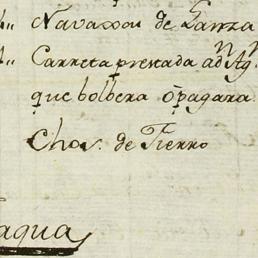 Navaxou de Lanza
Carreta prestada a dn Agn
que bolbera o pagara
Chov. de Fierro
aqua